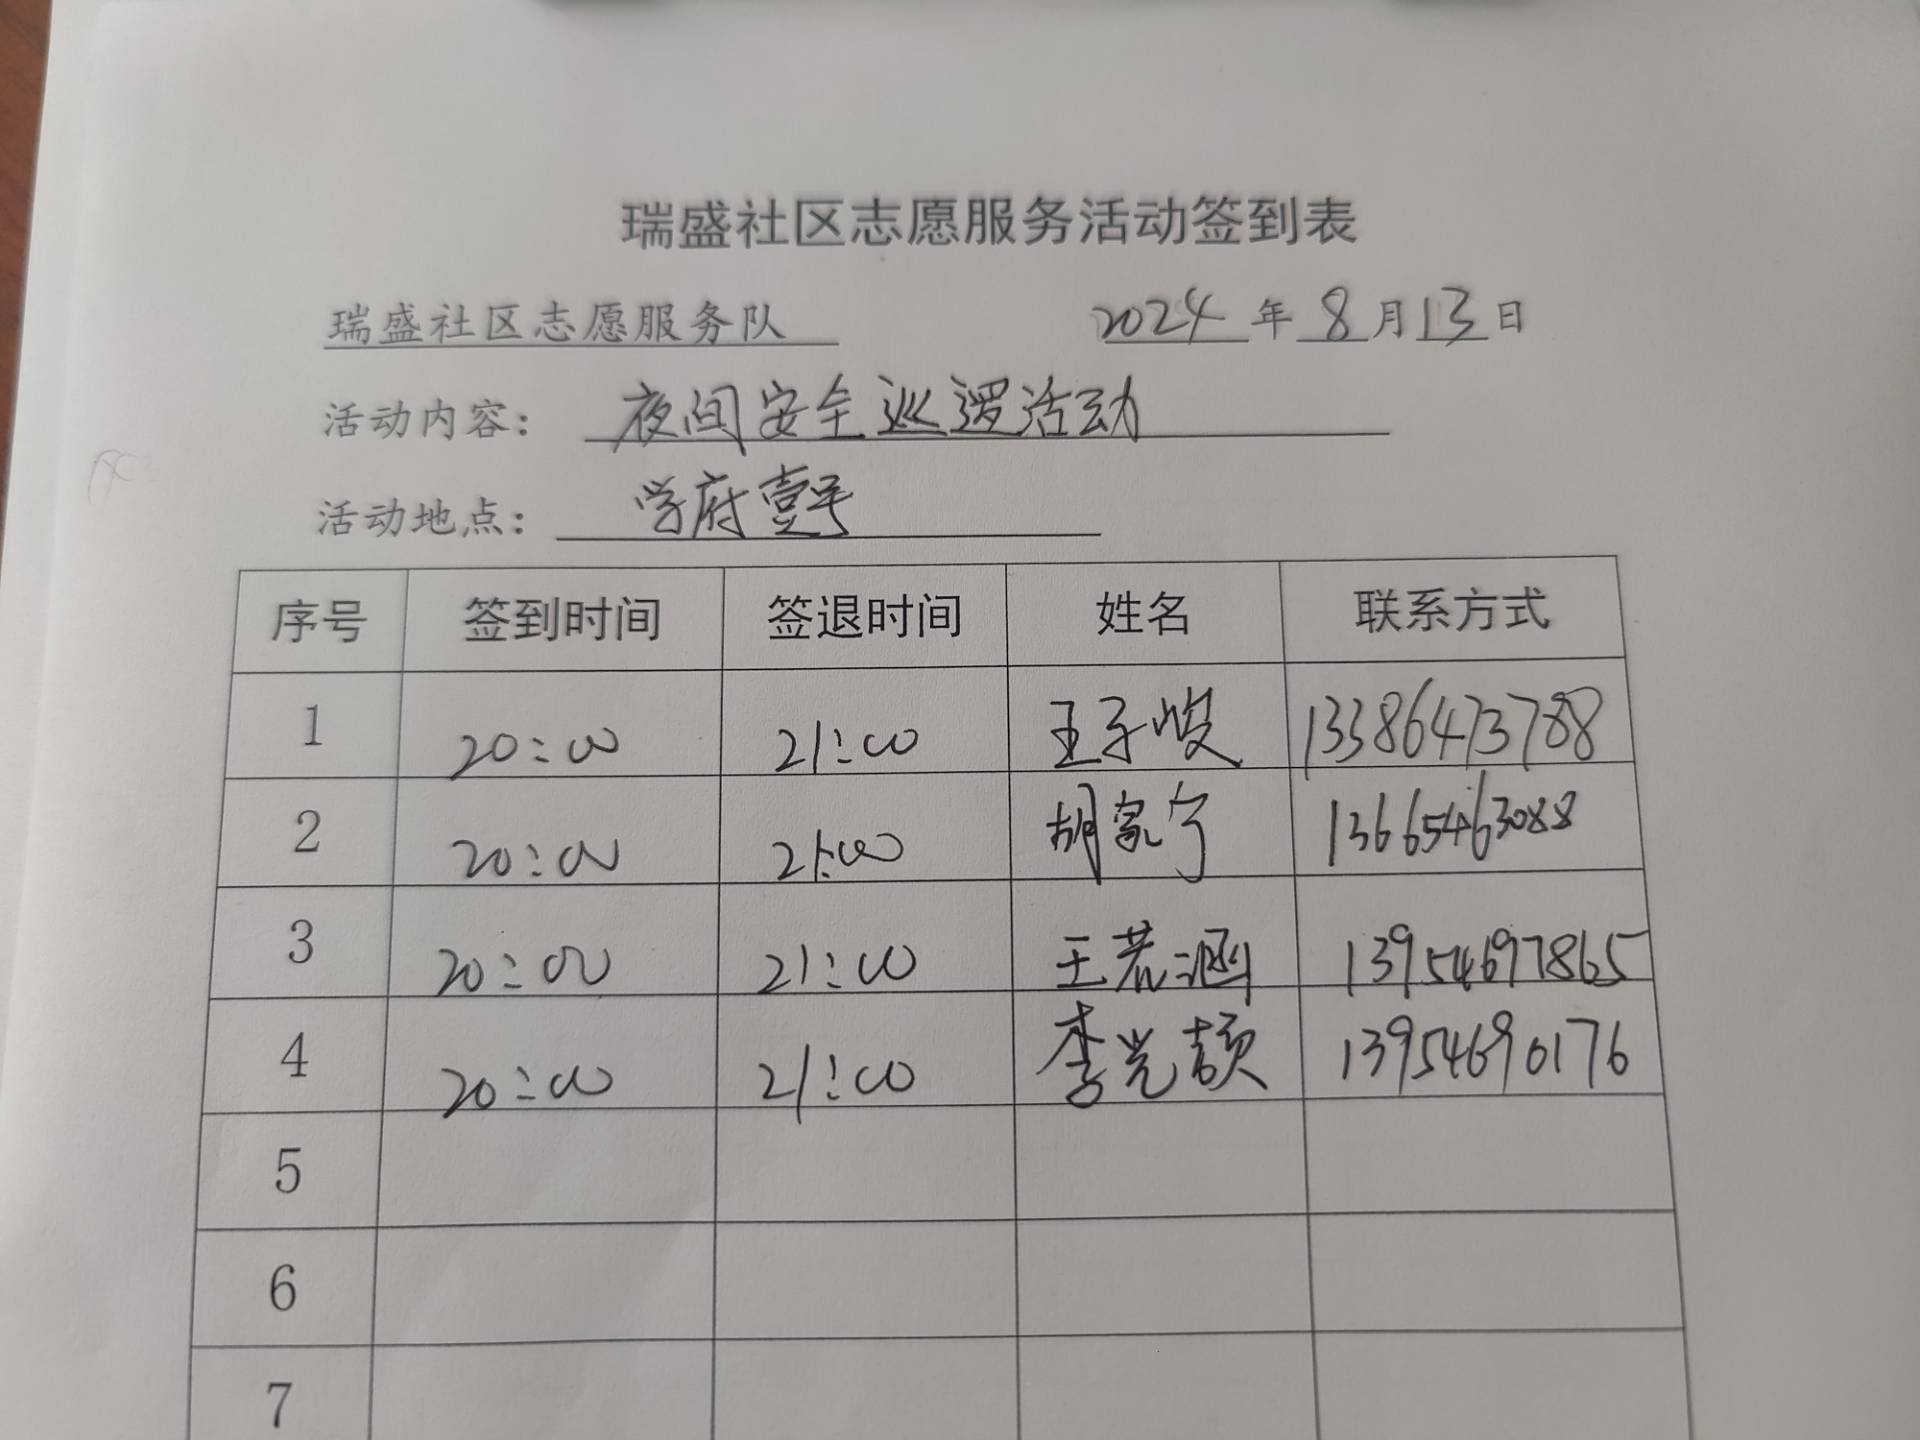 瑞盛社区志愿服务活动签到表
瑞盛社区志愿服务队 2024年8月13日
活动内容: 夜间安全巡逻活动
活动地点: 学府壹号
序号 签到时间 签退时间 姓名 联系方式
1 20:00 21:00 王子峻 13386473788
2 20:00 21:00 胡家宁 13665463088
3 20:00 21:00 王若涵 13954697865
4 20:00 21:00 李光颉 13954690176
5
6
7